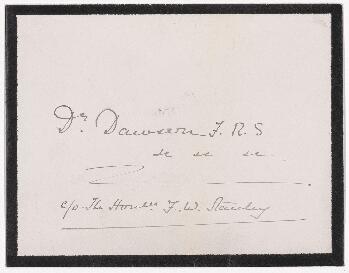 Dr. Dawson F.R.S
&c &c &c
c/o The Honble F.W. Stanley